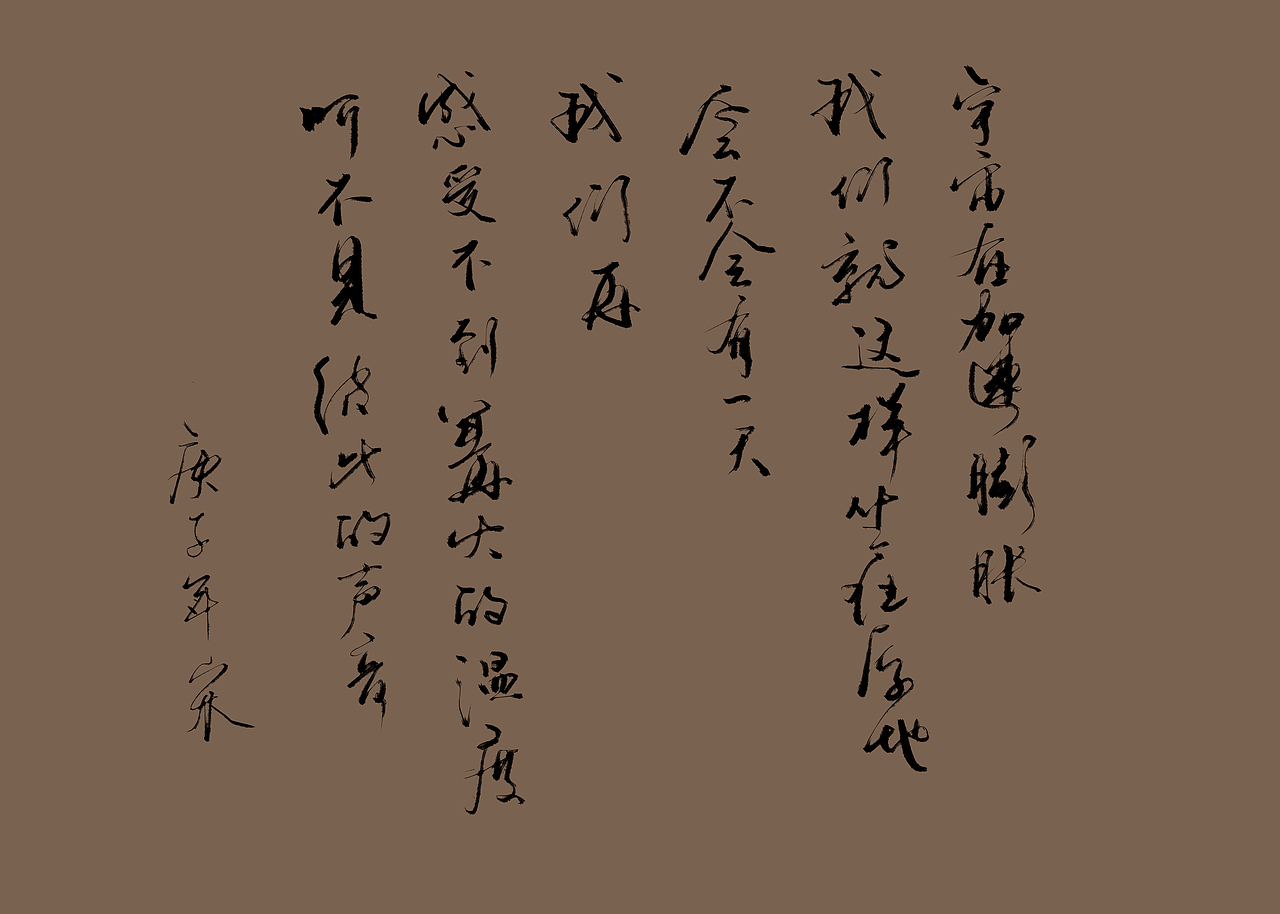 宇宙在加速膨胀
我们就这样坐在原地
会不会有一天
我们再
感受不到篝火的温度
听不见彼此的声音
庚子年